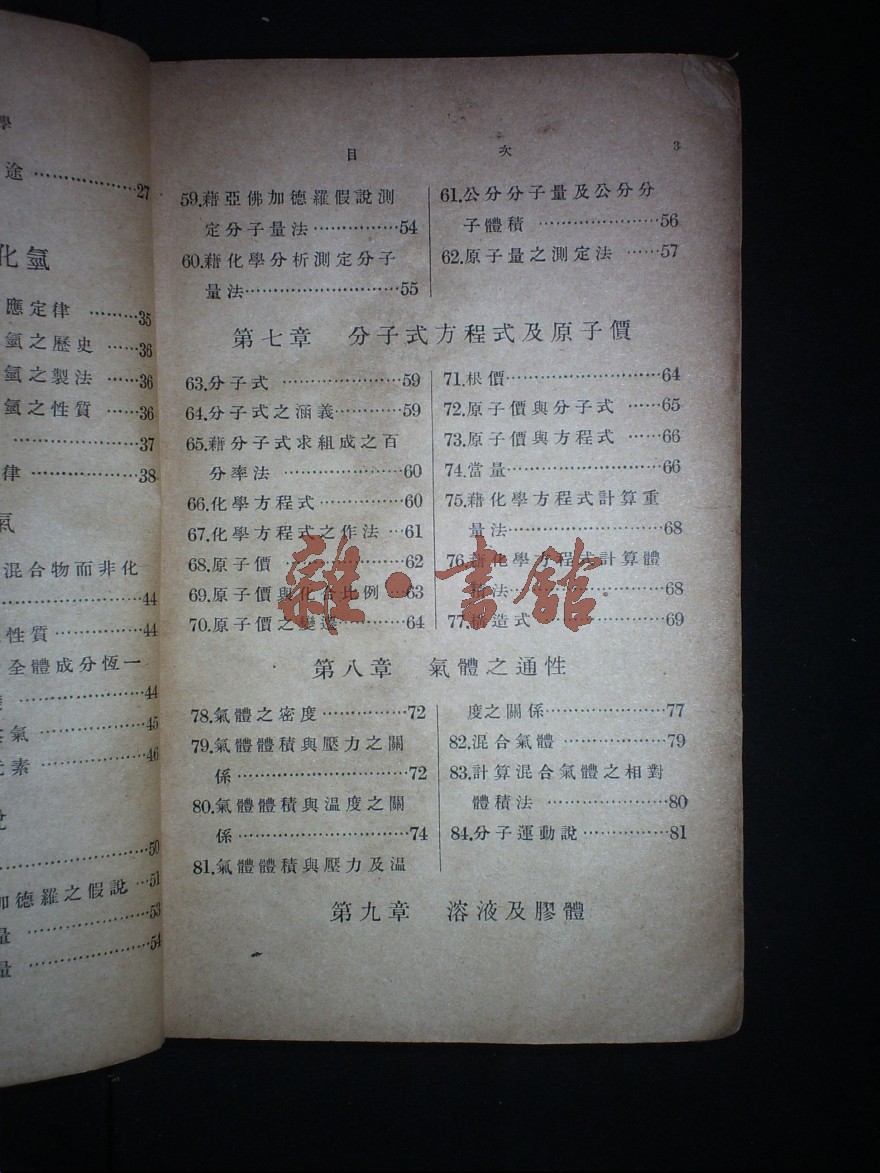 學
途 ………………27
化氫
應定律 ………35
氫之歷史 ……36
氫之製法 ……36
氫之性質 ……36
………………37
律 ……………38
氣
混合物而非化
………………44
性質 ……………44
全體成分恆一
………………44
氣 ……………45
元素 ……………46
………………50
加德羅之假說 …51
量 ……………53
量 ……………54
目 次 3
59.藉亞佛加德羅假說測
定分子量法……………54
60.藉化學分析測定分子
量法……………………55
61.公分分子量及公分分
子體積 …………………56
62.原子量之測定法 ……57
第七章 分子式方程式及原子價
63.分子式 …………………59
64.分子式之涵義…………59
65.藉分子式求組成之百
分率法 …………………60
66.化學方程式……………60
67.化學方程式之作法 …61
68.原子價 …………………62
69.原子價與化合比例 …63
70.原子價之變遷…………64
71.根價………………………64
72.原子價與分子式 ……65
73.原子價與方程式 ……66
74.當量………………………66
75.藉化學方程式計算重
量法………………………68
76.藉化學方程式計算體
積法………………………68
77.構造式 …………………69
第八章 氣體之通性
78.氣體之密度……………72
79.氣體體積與壓力之關
係…………………………72
80.氣體體積與温度之關
係…………………………74
81.氣體體積與壓力及温
度之關係…………………77
82.混合氣體 ………………79
83.計算混合氣體之相對
體積法 …………………80
84.分子運動說……………81
第九章 溶液及膠體
雜·書館